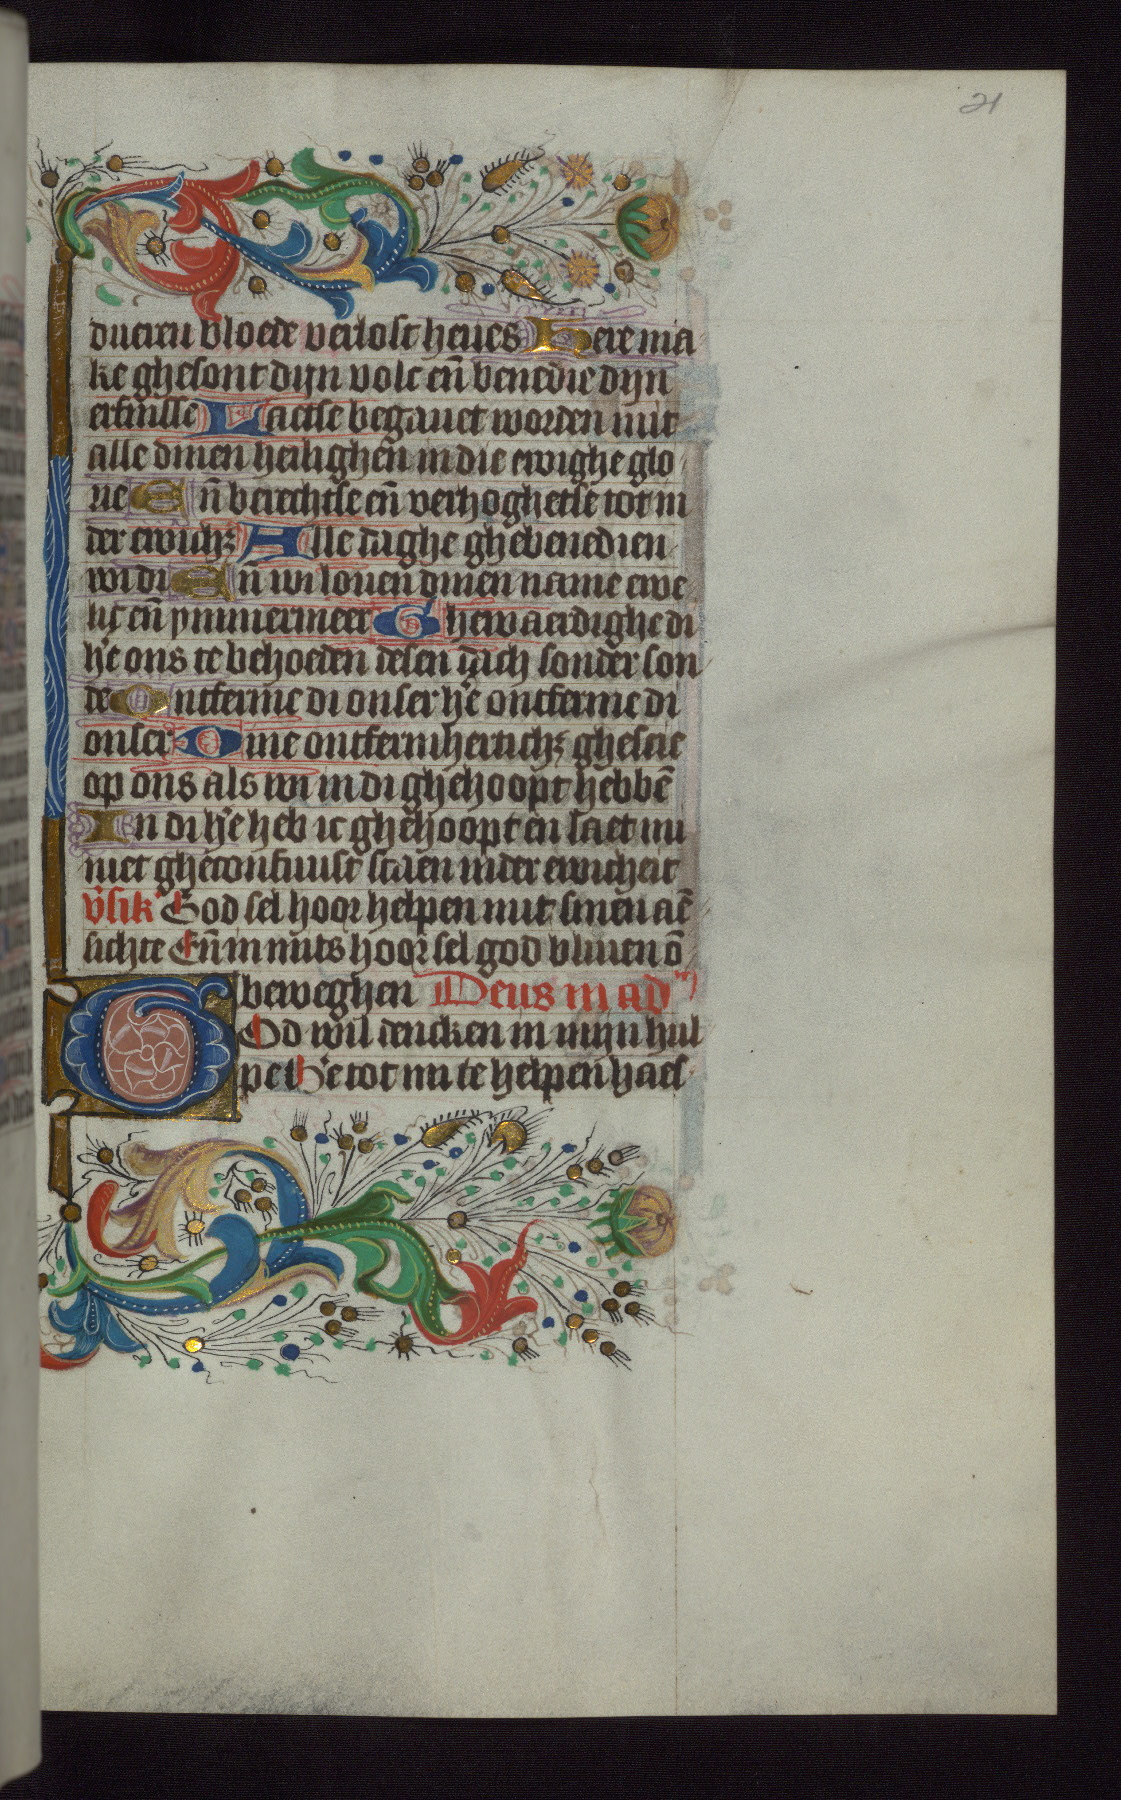 21
dueren bloede verlost heues Here ma
ke ghesont dijn volc en̄ benedie dijn
erfnisse Laetse begauet worden mit
alle dinen heilighen̄ in die ewighe glo
rie En̄ berechtse en̄ verhoghetse tot in
der ewichz Alle daghe ghebenedien
wi di En̄ wi louen dinen name ewe
lic en̄ ymmermeer Ghewaerdighe di
he ons te behoeden desen dach sonder son
de Ontferme di onser he ontferme di
onser Dine ontfermhertichz ghescie
op ons als wi in di ghehoopt hebbē
In di he heb ic ghehoopt en laet mi
niet gheconfuust staen inder ewicheit
v̄sik God sel hoor helpen mit sinen aē
sichte En̄ in mits hoor sel god bliuen ō
beweghen Deus in ad
God wil dencken in mijn hul
pe He tot mi te helpen haes